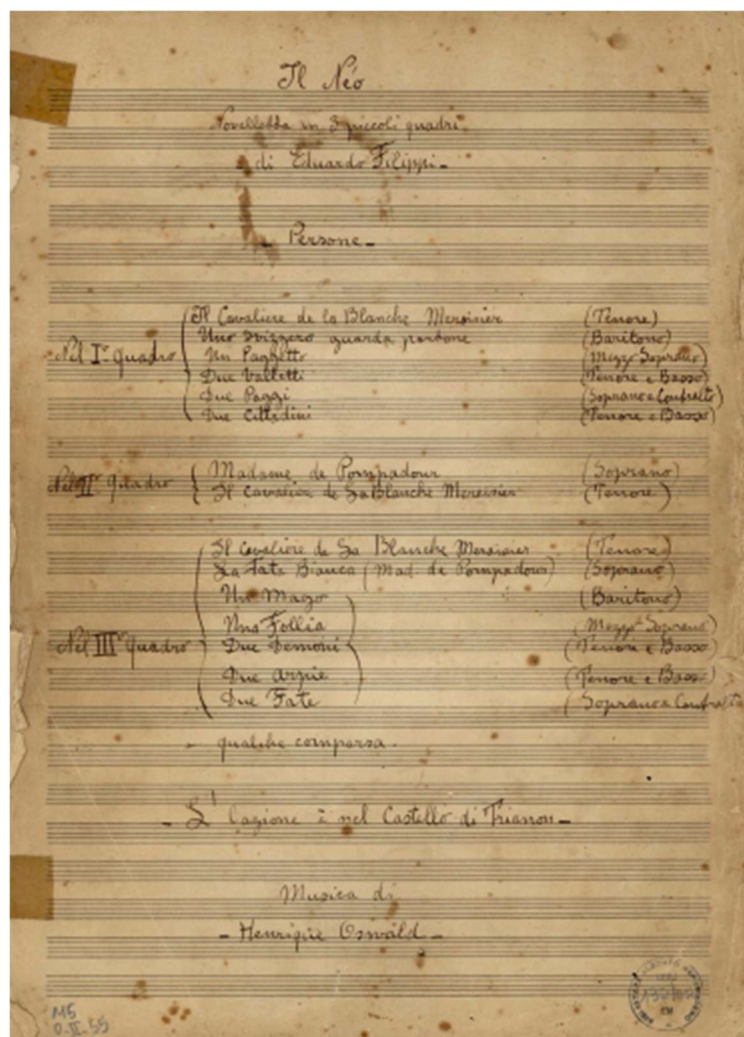 Il Néo
Novelletta in 3 piccoli quadri
di Eduardo Filippi -
- Persone -
Il Cavaliere de la Blanche Mersinier (Tenore)
Uno svizzero guarda portone (Baritono)
Nel Iº quadro Un Paggetto (Mezzo Soprano)
Due Valletti (Tenore e Basso)
Due Paggi (Soprano e Contralto)
Due Cittadini (Tenore e Basso)
Madame de Pompadour (Soprano)
Nel IIº quadro Il Cavaliere de La Blanche Mersinier (Tenore)
Il Cavaliere de La Blanche Mersinier (Tenore)
La Fata Bianca (Mad. de Pompadour) (Soprano)
Un Mago (Baritono)
Una Follia (Mezzo Soprano)
Nel IIIº quadro Due Demoni (Tenore e Basso)
Due Arpie (Tenore e Basso)
Due Fate (Soprano e Contralto)
- qualche comparsa -
- L'azione è nel Castello di Trianon -
Musica di
- Henrique Oswald -
MS
O.II.55